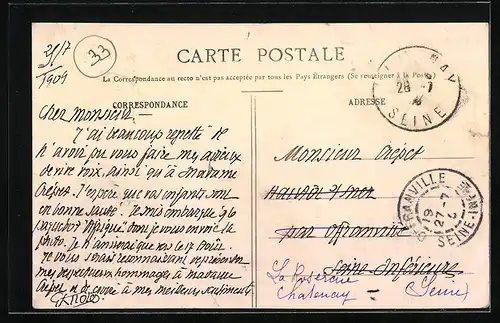 25/7
1909
33
CARTE POSTALE
La Correspondance au recto n'est pas acceptée par tous les Pays Étrangers (Se renseigner à la Poste)
CORRESPONDANCE
ADRESSE
Cher Monsieur, —
J'ai beaucoup regretté de
n'avoir pu vous faire mes adieux
de vive voix, ainsi qu'à Madame
Crépet. J'espère que vos enfants sont
en bonne santé. Je suis embarqué
paquebot Afrique dont je vous envoie la
photo. Je n'arriverai que vers le 17 Août.
Je vous serais reconnaissant de présenter
mes respectueux hommages à Madame
Crépet et de croire à mes meilleurs sentiments
Monsieur Crépet
par Offranville
Seine Inférieure
La
Chatenay (Seine)
28 -7
SEINE
OFFRANVILLE
19
27 -7
SEINE-INF